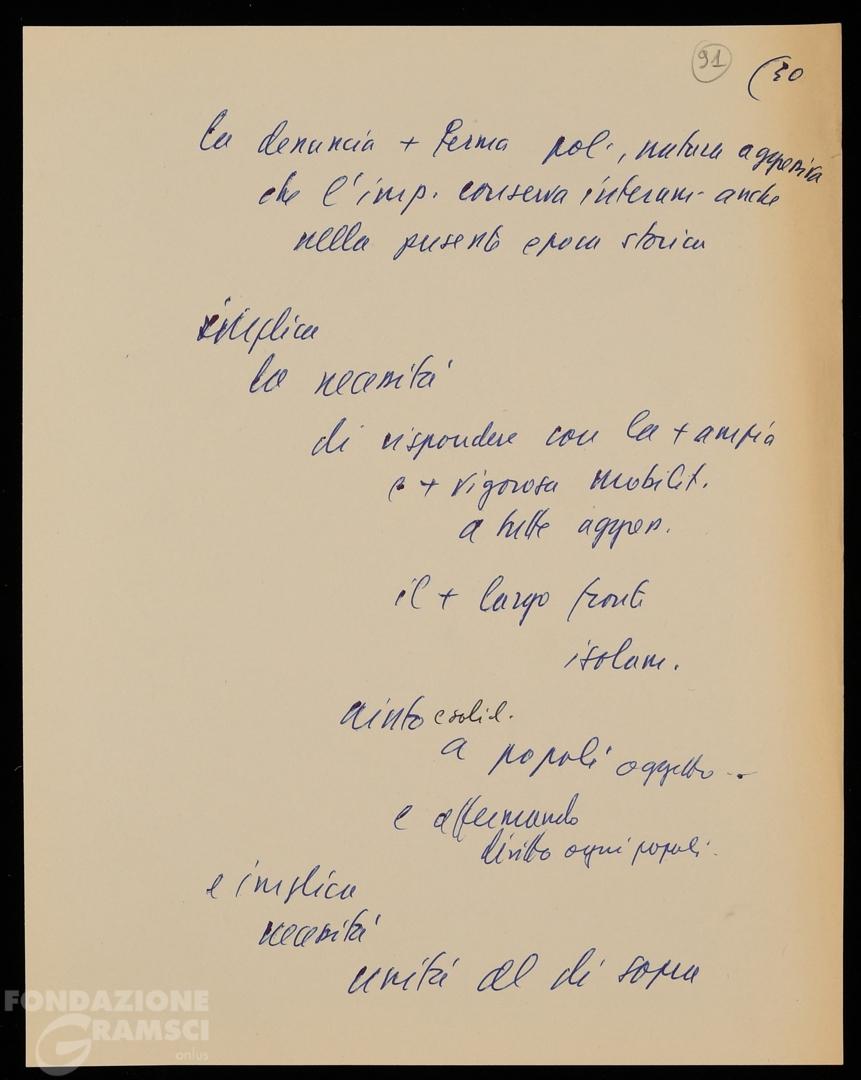 91
(30
la denuncia + ferma pol., natura aggressiva
che l'imp. conserva interam. anche
nella presente epoca storica
implica
la necessità
di rispondere con la + ampia
e + vigorosa mobilit.
a tutte aggress.
il + largo fronte
isolam.
aiuto e solid.
a popoli oggetto ..
e affermando
diritto ogni popoli.
e implica
necessità
unità al di sopra
FONDAZIONE
GRAMSCI
onlus